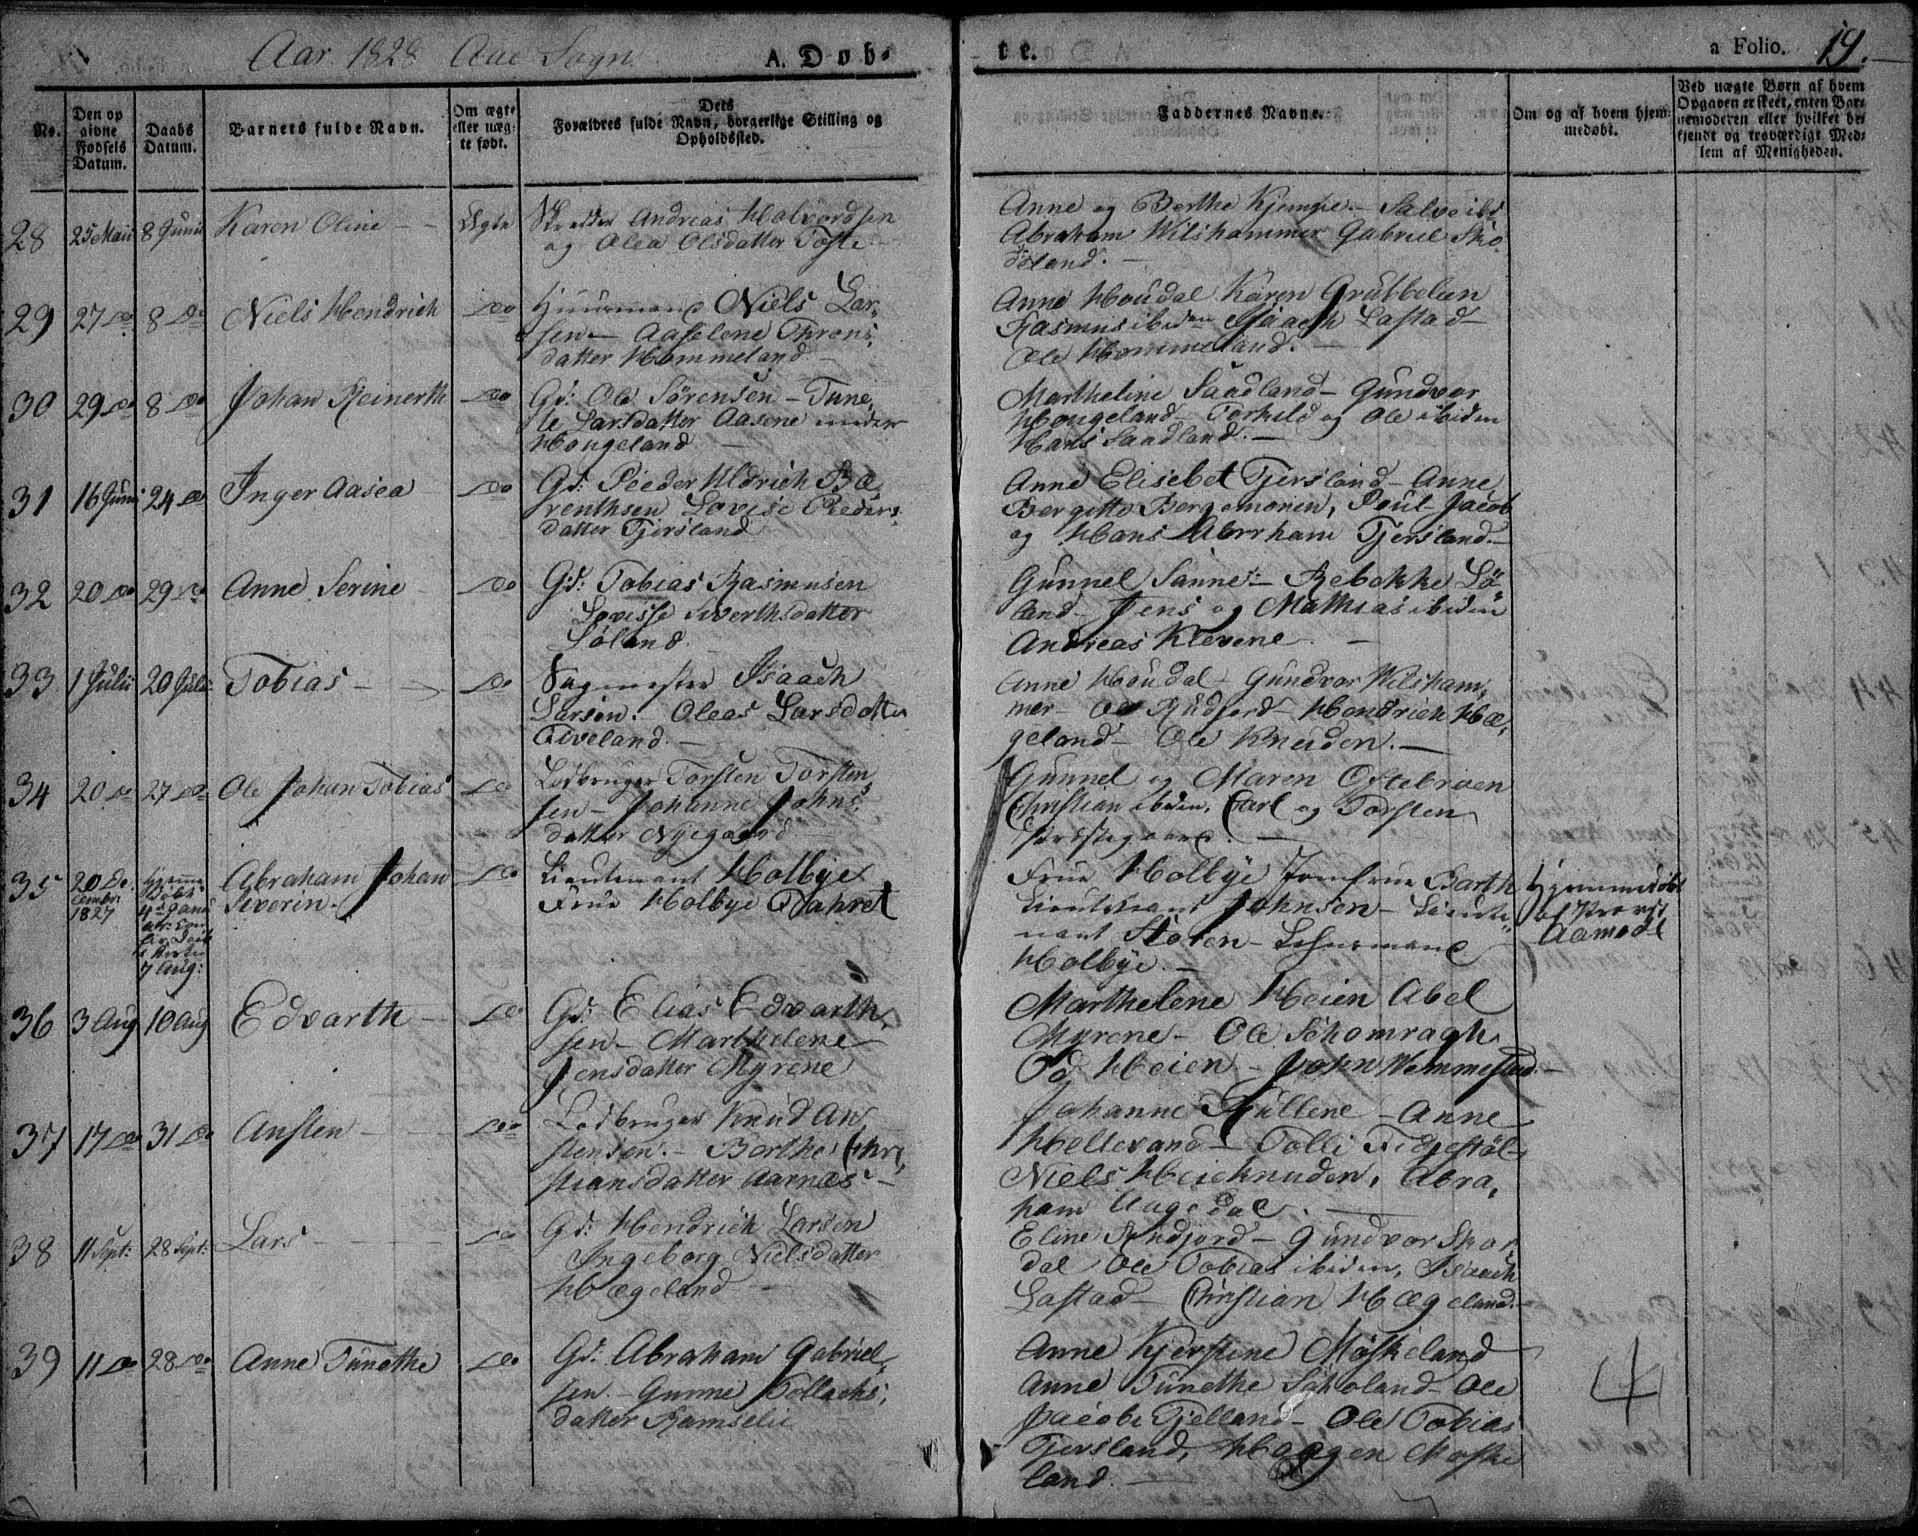 Aar 1828 Aae Sogn.
A. Døb-
te.
a Folio. 19.
No.
Den op
givne
Fødsels
Datum.
Daabs
Datum.
Barnets fulde Navn.
Om ægte
eller uæg-
te født.
Dets
Forældres fulde Navn, borgerlige Stilling og
Opholdssted.
Faddernes Navne.
Om og af hvem hjem-
medøbt.
Ved uægte Børn af hvem
Opgaven er skeet, enten Bar-
nemoderen eller hvilket be-
kjendt og troværdigt Med-
lem af Menigheden.
28 25 Maii 8 Junii Karen Oline Ægte
Skredder Andreas Halvordsen
og Olea Olsdatter Tofte
Anne og Berthe Kjempe - Salve ibd
Abraham Wilshammer Gabriel Sko
deland.
29 27 do 8 do Niels Hendrich do
Huusmand Niels Lar-
sen - Aaselene Throns-
datter Hommeland
Anne Houdal Karen Grubbelien
Rasmus ibiden Isaach Lastad
Ole Hommeland.
30 29 do 8 do Johan Reinerth do
Gd: Ole Sörensen - Tune
te Larsdatter Aasene under
Hougeland
Martheline Saadland - Gundvor
Hougeland - Torkild og Ole ibiden
Hans Saadland.
31 16 Junii 24 do Inger Aasea do
Gd: Peeder Uldrich Be-
renthsen Lovise Peders-
datter Tjersland
Anne Elisebet Tjersland - Anne
Bergitte Bergemonen, Poul Jacob
og Hans Abrrham Tjersland.
32 20 do 29 do Anne Serine do
Gd: Tobias Rasmusen
Lovisse Siverthsdatter
Söland.
Gunnel Sanne - Rebekke Sö-
land - Jens og Mathias ibiden
Andreas Klevene.
33 1 Julii 20 Julii Tobias do
Sagmester Isaach
Larsen. Oleas Larsdatter
Eiveland.
Anne Houdal - Gundvor Wilsham-
mer - Ole Rudjord - Hendrich Hæ-
geland - Ole Knuden.
34 20 do 27 do Ole Johan Tobias do
Lodbruger Torsten Torsten
sen - Johanne Johns-
datter Nyegaard
Gunnel og Maren Oftebroen
Christian ibiden, Carl og Torsten
Præstegaard.
35 20 De-
cembr.
1827
Hjemme
döbt
4de Janu
ar:
Daab
i Kirken
7 Aug:
Abraham Johan
Severin.
do
Lieutenant Holbye
Frue Holbye
Frue Holbye Jomfrue Barth
Lieutenant Johnsen - Lieute-
nant Storen - Lehnsmand
Holbye.
Hjemmedöbt
af Provst
Aamodt
36 3 Aug 10 Aug Edvarth do
Gd: Elias Edvarth-
sen - Marthelene
Jensdatter Myrene
Marthelene Heien Abel
Myrene - Ole Schomragh
Od Heien - John Wemmestad.
37 17 do 31 do Ansten do
Lodbruger Knud An-
stensen. - Berthe Chri-
stiansdatter Aarnes
Johanne Rullene - Anne
Hellevand - Tolli Fidjestöl
Niels Heieknuden, Abra-
ham Aagedal.
38 11 Sept: 28 Sept: Lars do
Gd: Hendrich Larsen
Ingeborg Nielsdatter
Hægeland
Eline Rudjord - Gundvor Skar-
dal Ole Tobias ibiden, Isaach
Lastad - Christian Hægeland.
39 11 do 28 do Anne Tunethe do
Gd: Abraham Gabriel-
sen - Gunne Tollachs-
datter Ramselie
Anne Kjerstine Möskeland
Anne Tunethe Scholand - Ole
Jacob Tjelland - Ole Tobias
Tjersland, Haagen Möske
land.
4